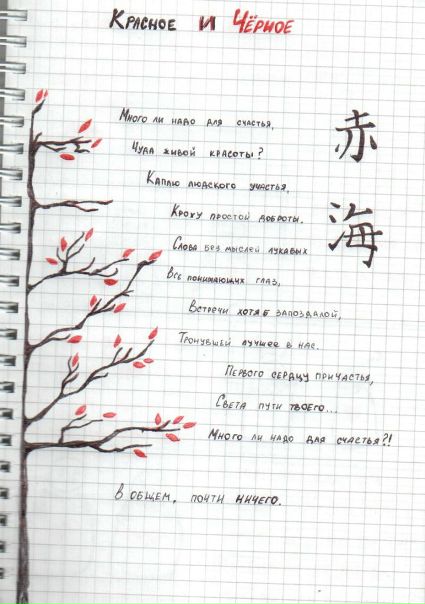 Красное и Чёрное
Много ли надо для счастья,
Чуда живой красоты?
Каплю людского участья,
Кроху простой доброты.
Слова без мыслей лукавых
Все понимающих глаз,
Встречи хотя б запоздалой,
Тронувшей лучшее в нас.
Первого сердцу причастья,
Света пути твоего...
Много ли надо для счастья?!
В общем, почти ничего.
赤
海